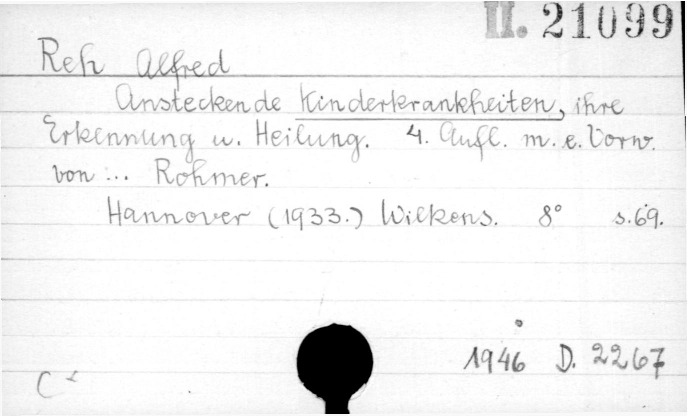 II. 21099
Reh Alfred
Ansteckende Kinderkrankheiten, ihre
Erkennung u. Heilung. 4. Aufl. m. e. Vorw.
von ... Rohmer.
Hannover (1933.) Wilkens. 8° s. 69.
1946 D. 2267
C